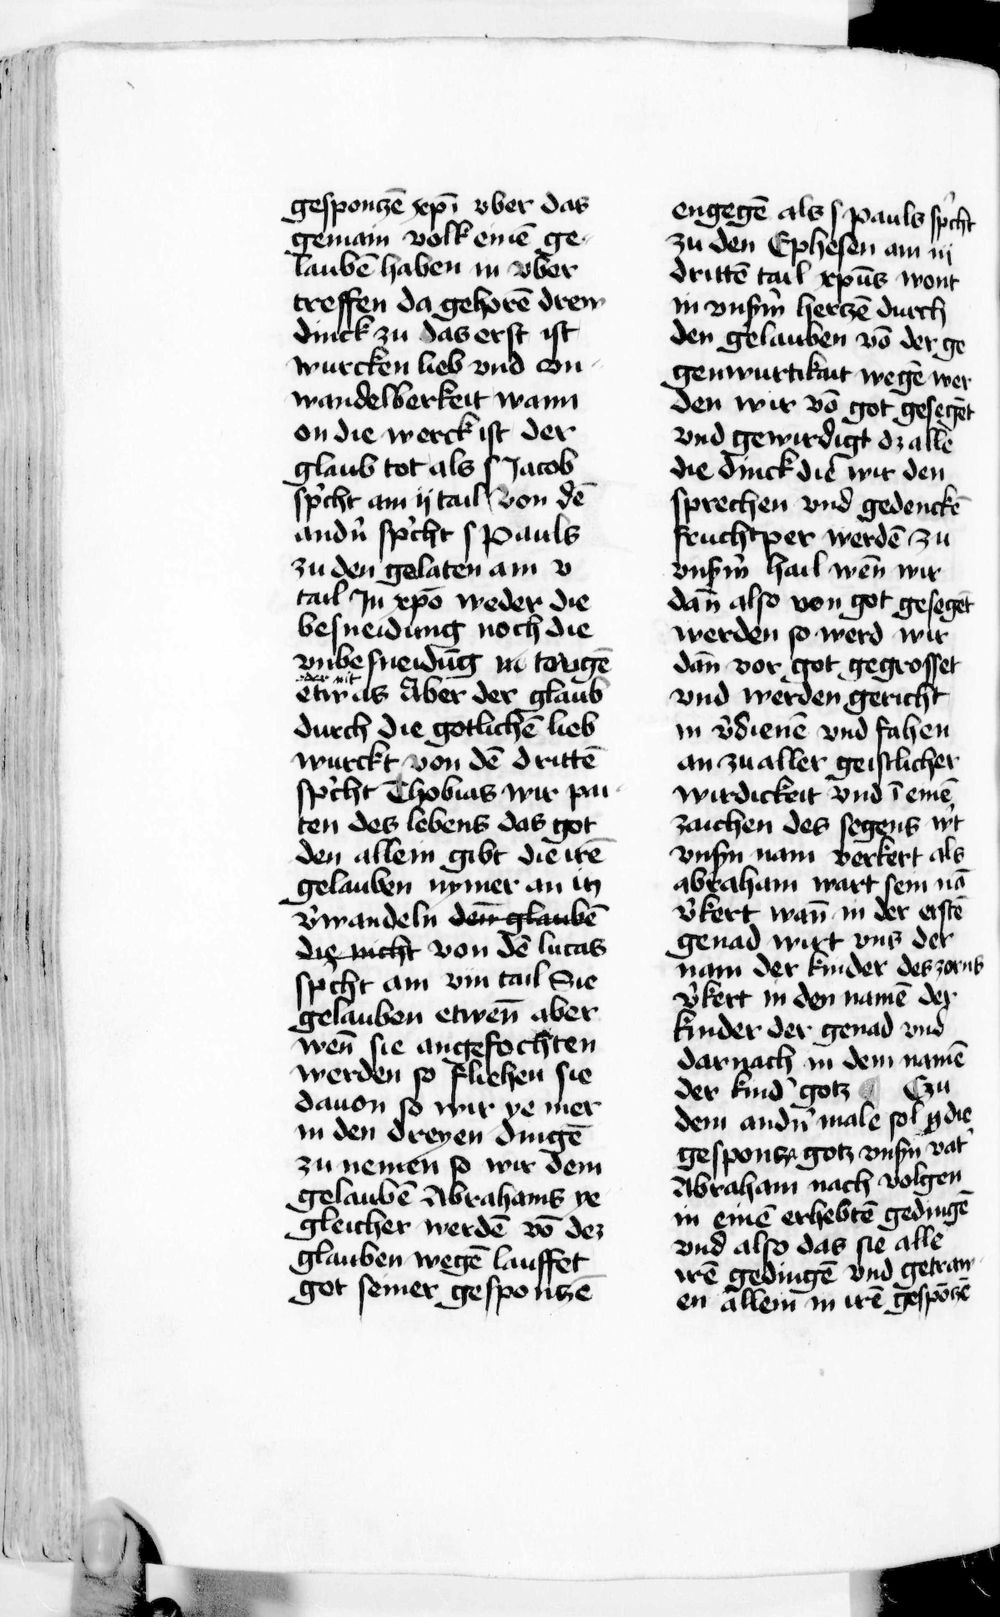 gesponczē xp̄i vber das
gemain volk einē ge-
laubē haben in vber
treffen da gehorē drew
dinck zu das erst ist
wurcken lieb vnd vn-
wandelberkeit wann
on die werck ist der
glaub tot als s Jacob
sp̓cht am ij tail Von dē
andn̓ sp̓cht s Pauls
zu den gelaten am v
tail Jn xp̄o weder die
besneidung noch die
vnbesneidūg tewgē
oder nit
etwas Aber der glaub
durch die gotlichē lieb
wurckt von dē drittē
sp̓cht Thobias wir pei-
ten des lebens das got
den allein gibt die irē
gelauben nymer an im
v̓wandeln den̄ glaubē
die nicht von dē lucas
sp̓cht am viij tail Sie
gelauben etwen̄ aber
wen̄ sie angefochten
werden so fliehen sie
dauon so wir ye mer
in den dreyen dingē
zu nemen so wir dem
gelaubē Abrahams ye
gleicher werdē vō dez
glauben wegē lauffet
got seiner gesponczē
engegē als s Pauls sp̓cht
zu den Ephesen am iij
drittē tail xp̄us wont
in vnsm̓ herczē durch
den gelauben vō der ge
genwurtikait wegē wer
den wir vō got gesegēt
vnd gewirdigt dz alle
die dinck die wir den
sprechen vnd gedenckē
fruchtper werdē zu
vnsm̓ hail wen̄ wir
dan̄ also von got gesegēt
werden so werd wir
dan̄ vor got gegrosset
vnd werden gericht
in v̓dienē vnd fahen
an zu aller geistlicher
wirdickeit vnd ī einē
zaichen des segens w̓t
vnsn̓ nam verkert als
abraham wart sein nā
v̓kert wan̄ in der erstē
genad wirt vns der
nam der kinder des zorns
v̓kert in den namē der
kinder der genad vnd
darnach in dem namē
der kind̓ gotz Czu
dem andn̓ male sol die
gesponcz gotz vnsm̓ vat̓
Abraham nach volgen
in einē erhebtē gedingē
vnd also das sie alle
irē gedingē vnd getraw-
en allein in irē gespōczē